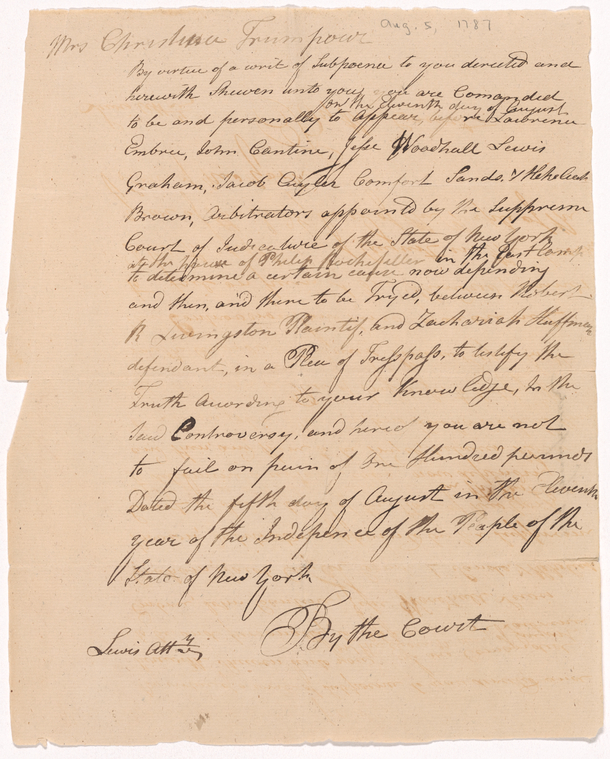 Aug. 5, 1787
Mrs Christina Trumpour
By virtue of a writ of Subpoence to you directed and
herewith Shewen unto you you are Comanded
on the eleventh day of August
to be and personally to appear before Lawrence
Embree, John Cantine, Jesse Woodhall Lewis
Graham, Jacob Cuyler Comfort Sands, & Hezekiah
Brown, Arbitrators appointed by the Suppreme
Court of Judicature of the State of New York
at the house of Philip Rockefeller in the East Camp
to determine a certain cause now depending
and then, and there to be Tryed, between Robert
R Livingston Plaintif, and Zachariah Huffman
defendant, in a Plea of Tresspass, to testify the
Truth Acording to your Knowledge, in the
Said Controversy, and hereof you are not
to fail on pain of One Hundred pounds
Dated the fifth day of August in the Eleventh
year of the Indepence of the People of the
State of New York
By the Court
Lewis Atty